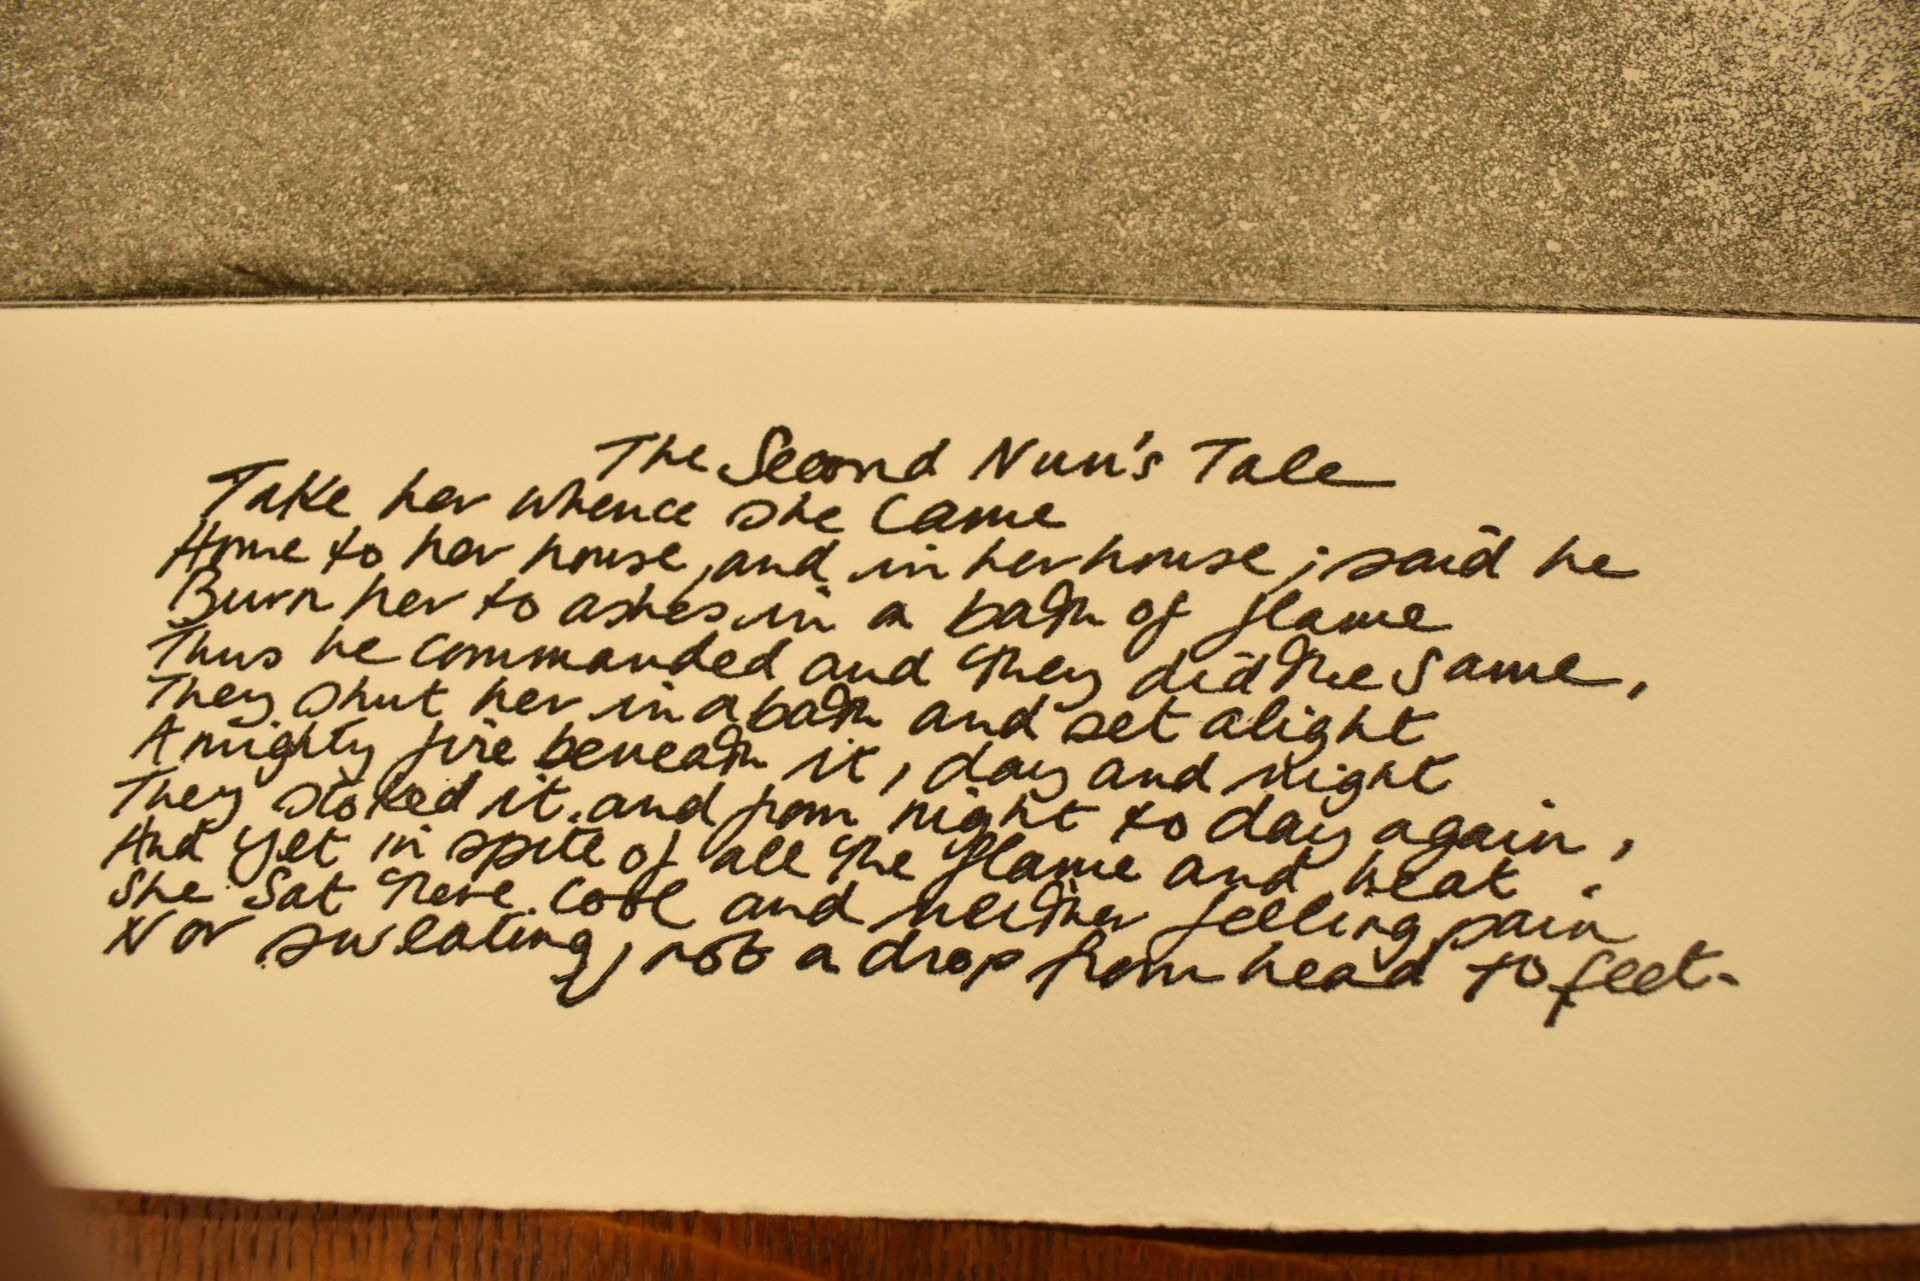 The Second Nun's Tale
Take her whence she came
Home to her house, and in her house; said he
Burn her to ashes in a bath of flame
Thus he commanded and they did the same,
They shut her in a bath and set alight
A mighty fire beneath it, day and night
They stoked it. and from night to day again,
And yet in spite of all the flame and heat.
She sat there cool and neither feeling pain
Nor sweating, not a drop from head to feet.